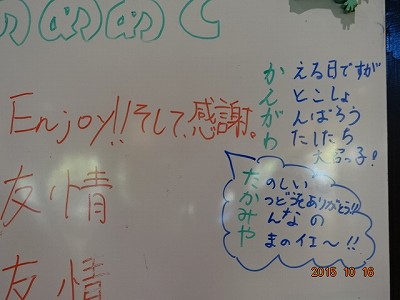 Enjoy!!そして、感謝。
友情
友情
かえる日ですが
んとこしょ
がんばろう
わたしたち
大宮っ子!
たのしい
かつどうありがとう!!
みんなの
やまのイエ〜!!
2015 10 16